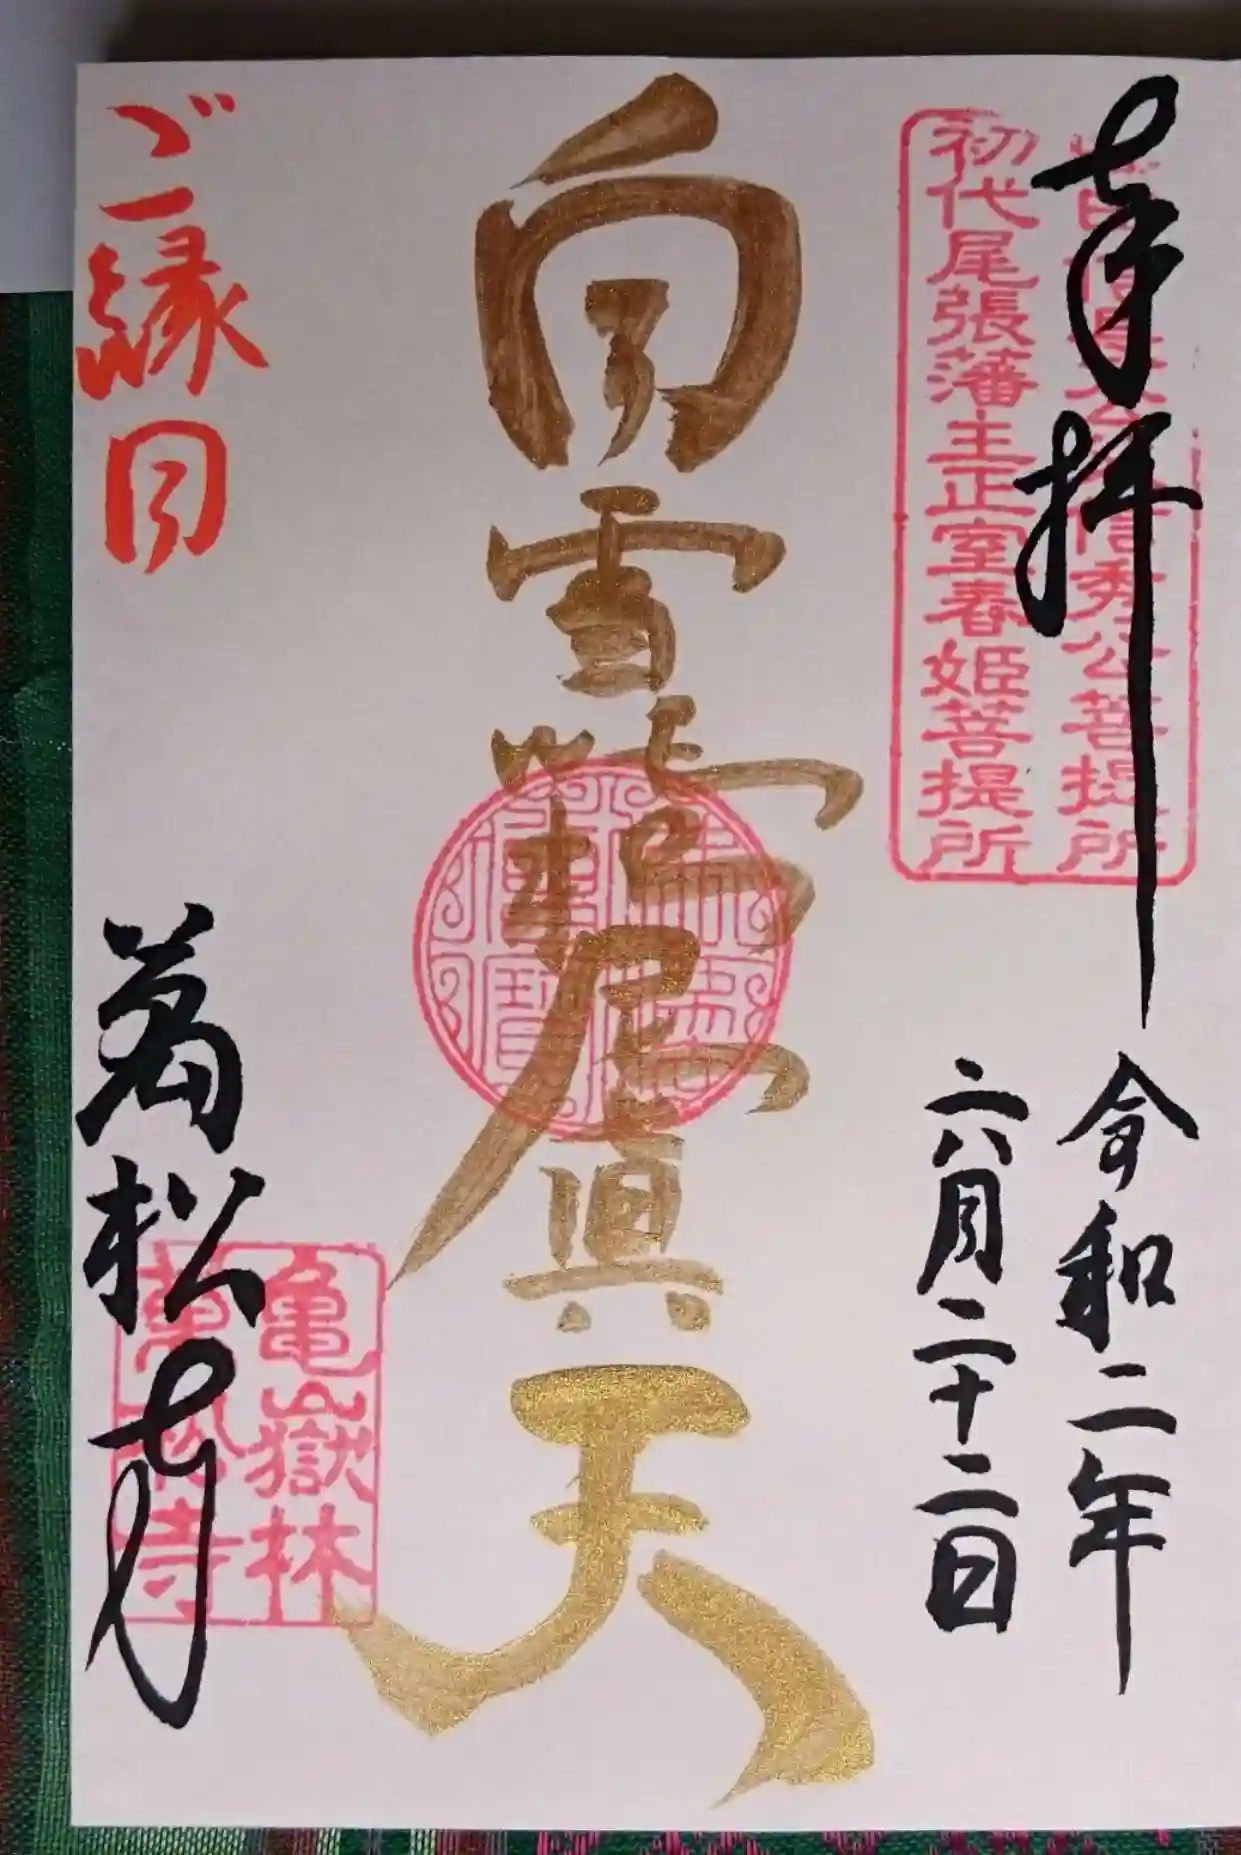 奉拝
令和二年
六月二十二日
信秀公菩提所
初代尾張藩主正室春姫菩提所
白雪吒枳尼眞天
ご縁日
萬松寺
亀嶽林
萬松寺